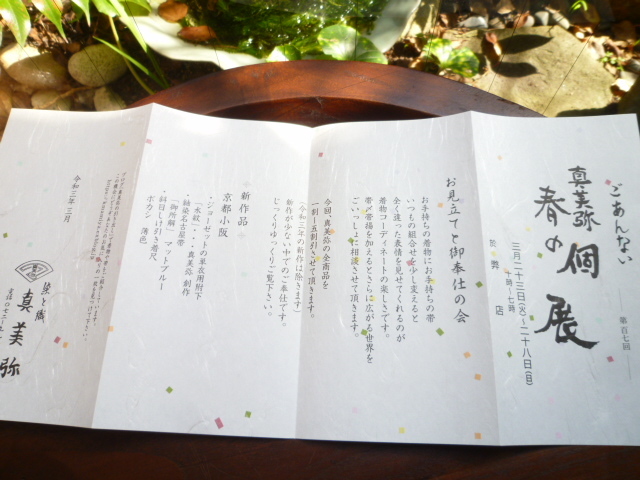 ごあんない
第百七回
真美弥 個展
春の
三月二十三日(火)〜二十八日(日)
十時〜七時
於 弊店
お見立てと御奉仕の会
お手持ちの着物にお手持ちの帯
いつもの組合せを少し変えると
全く違った表情を見せてくれるのが
着物コーディネートの楽しさです。
帯〆帯揚を加えるとさらに広がる世界を
ごいっしょに相談させて頂きます。
今回、真美弥の全商品を
一割〜五割引させて頂きます。
(令和三年の新作は除きます)
新作が少ない中でのご奉仕です。
じっくりゆっくりご覧下さい。
新作品
京都小阪
・ジョーゼットの単衣用附下
「水紋」・・・真美弥 創作
・紬染名古屋帯
「御所解」マットブルー
・斜目しけ引き着尺
ボカシ 薄色
令和三年 三月
染と織
真美弥